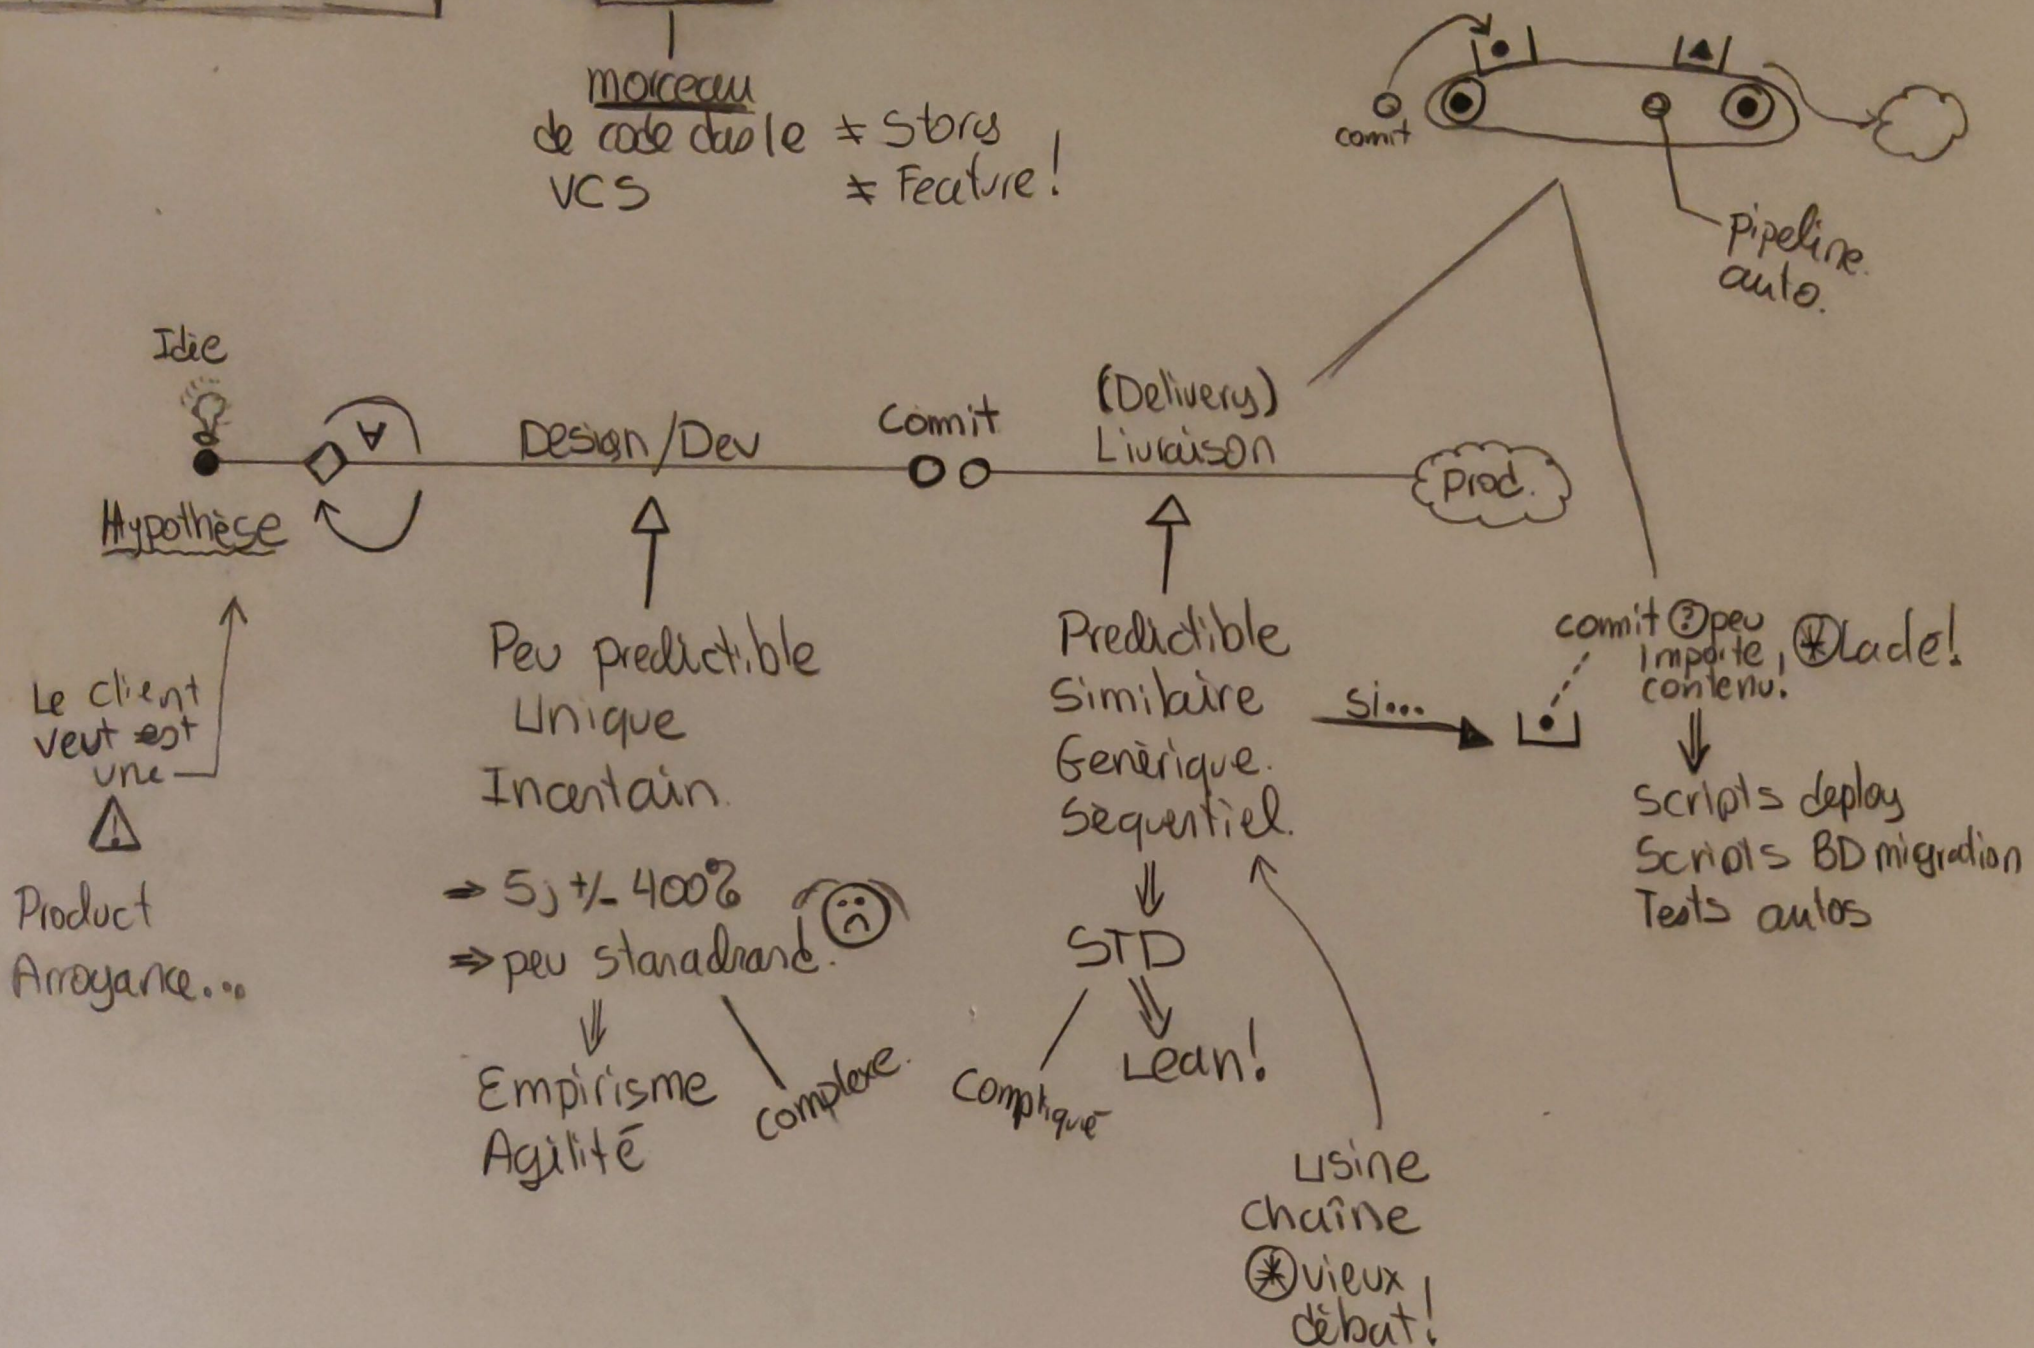 morceau
de code dasle ≠ Story
VCS ≠ Feature!
comit
pipeline
auto.
Idée
Design/Dev
Comit
(Delivery)
Livraison
Prod.
Hypothèse
Le client
veut est
une
Product
Arrogance...
Peu predictible
Unique
Incertain.
⇒ 5j +/- 400%
⇒ peu stanadrard.
Empirisme
Agilité
complexe.
Predictible
Similaire
Genèrique.
Sèquentiel.
STD
Compliqué
Lean!
si...
usine
chaîne
* vieux
dèbat!
commit ? peu
importe,
contenu!
Scripts deploy
Scripts BD migration
Tests autos